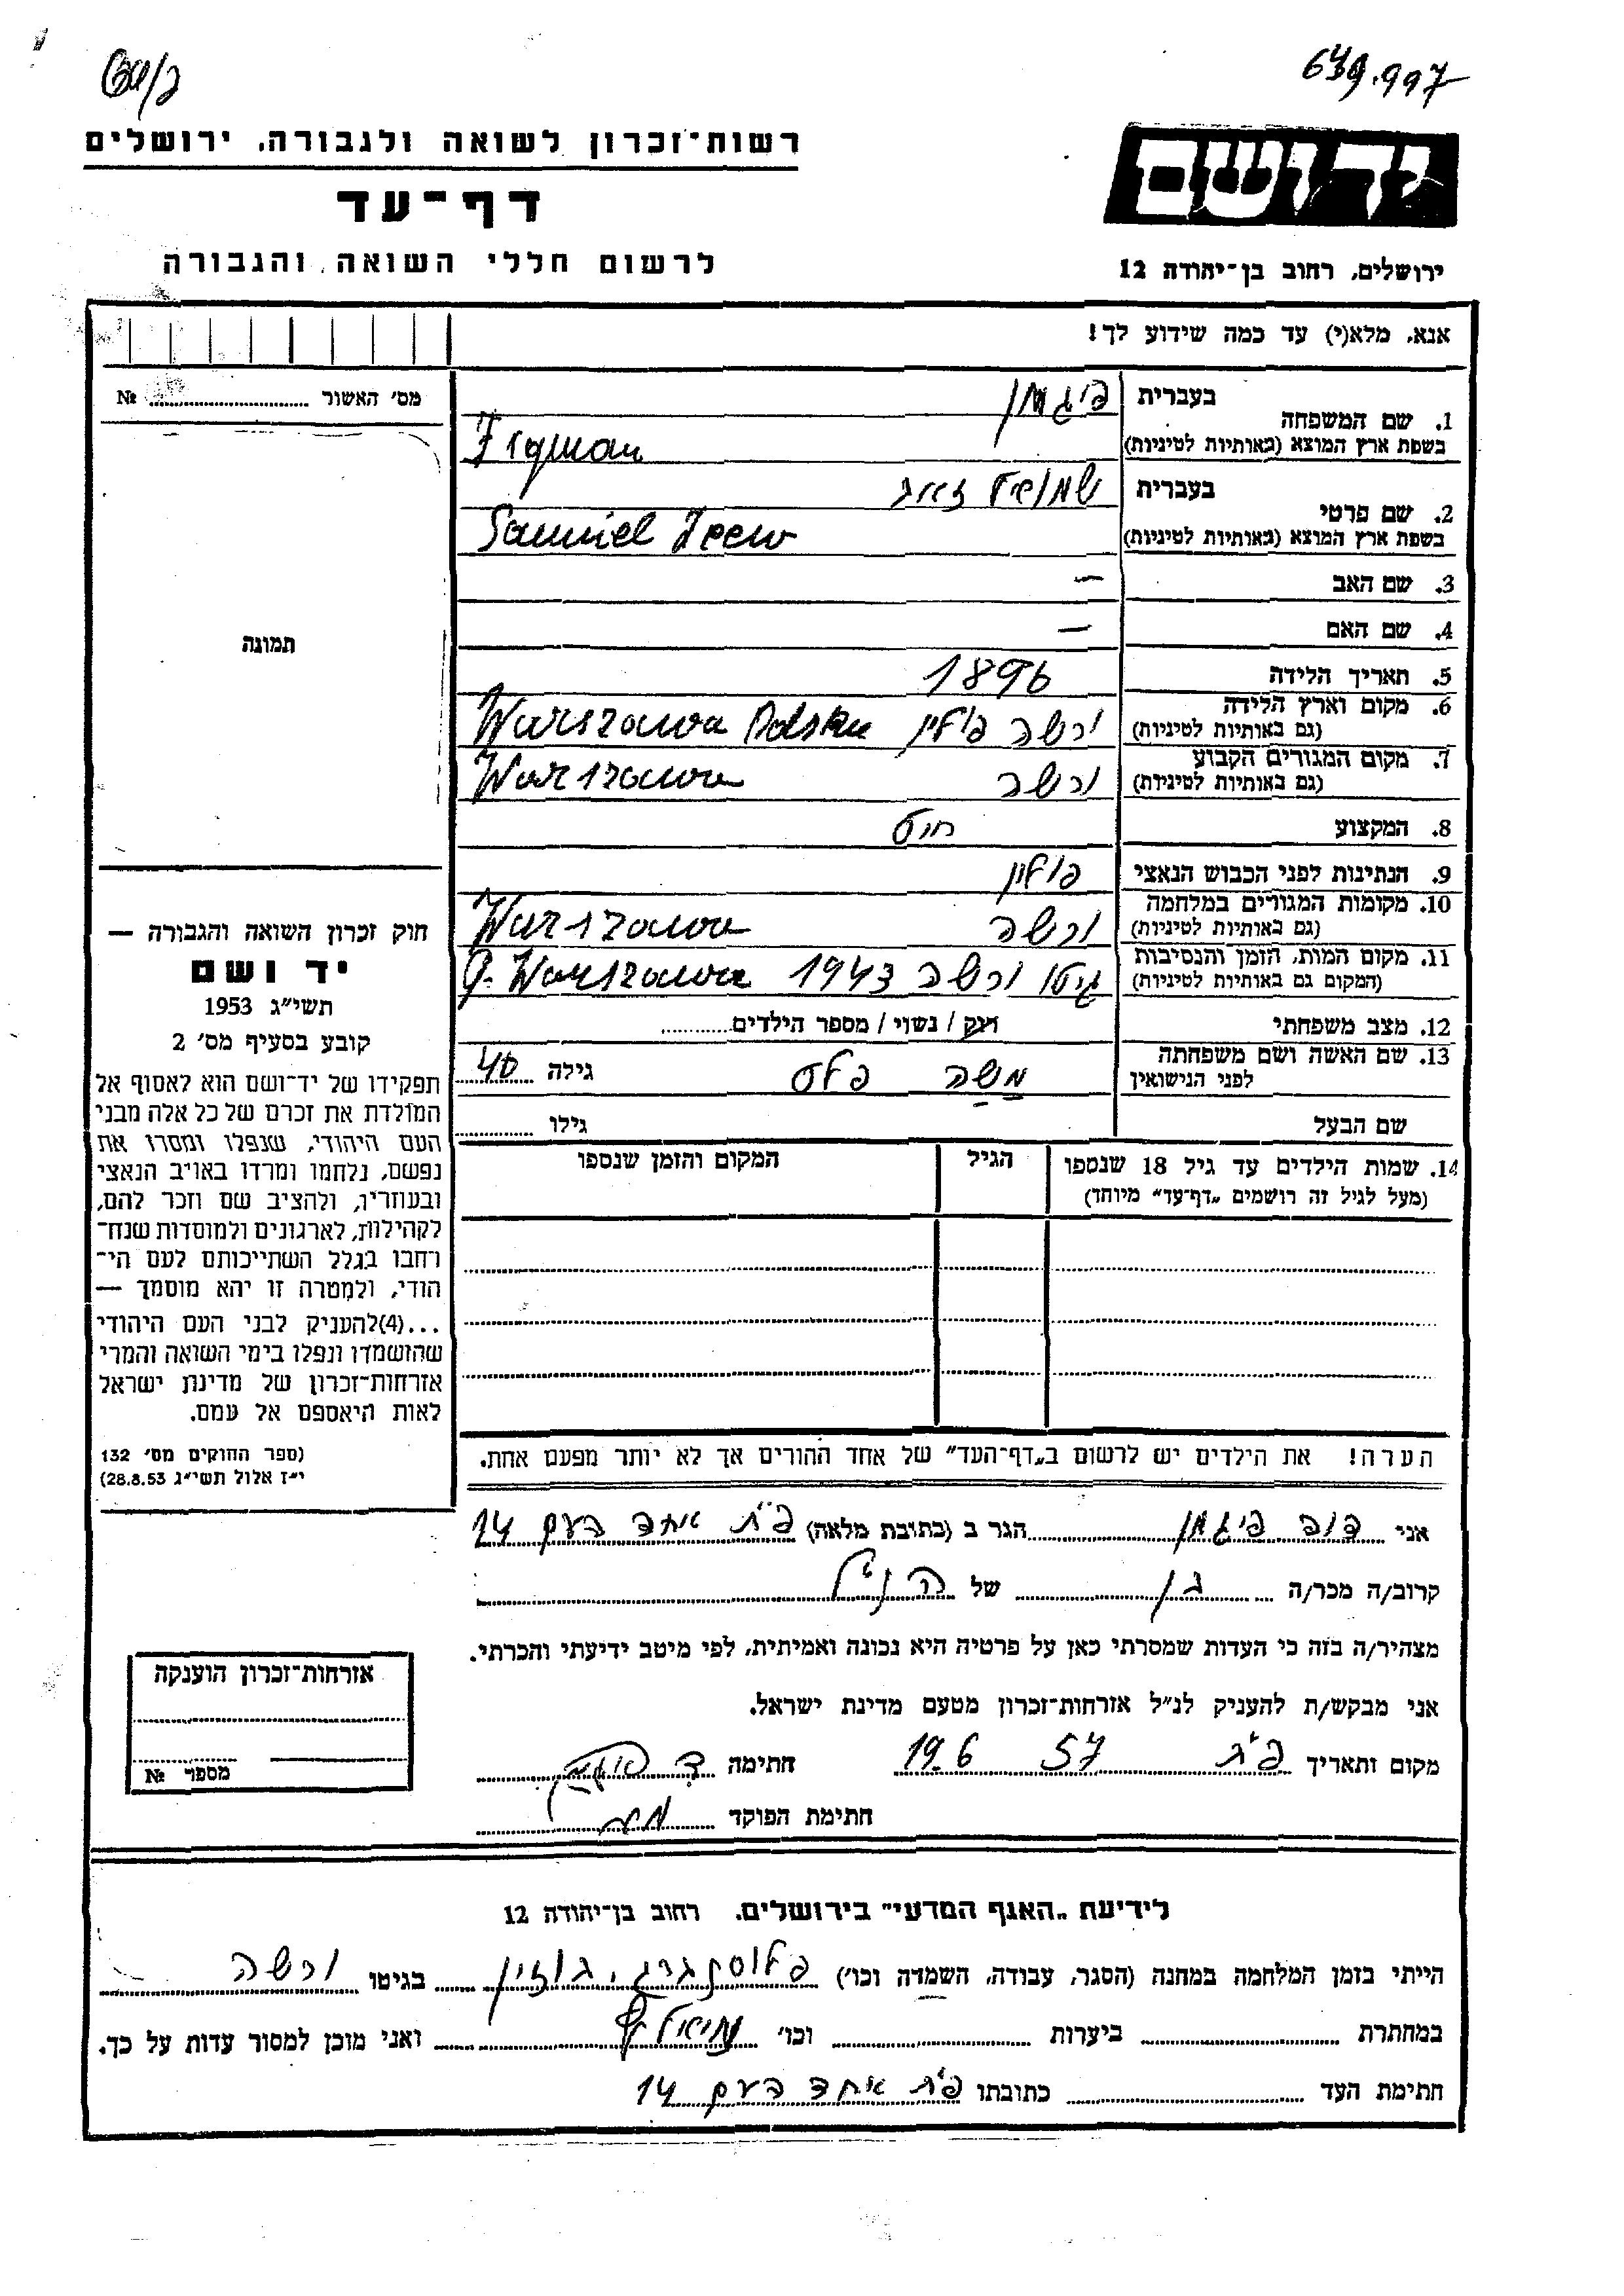 639.997
רשות־זכרון לשואה ולגבורה, ירושלים
יד ושם
דף־עד
לרשום חללי השואה והגבורה
ירושלים, רחוב בן־יהודה 12
אנא, מלא(י) עד כמה שידוע לך!
מס׳ האשור № ........
תמונה
1. שם המשפחה
בעברית פיגמן
בשפת ארץ המוצא (באותיות לטיניות) Figman
2. שם פרטי
בעברית שמואל זאב
בשפת ארץ המוצא (באותיות לטיניות) Samuel Zeew
3. שם האב —
4. שם האם —
5. תאריך הלידה 1896
6. מקום וארץ הלידה (גם באותיות לטיניות) ורשה פולין Warszawa Polska
7. מקום המגורים הקבוע (גם באותיות לטיניות) ורשה Warszawa
8. המקצוע חיט
9. הנתינות לפני הכבוש הנאצי פולין
10. מקומות המגורים במלחמה (גם באותיות לטיניות) ורשה Warszawa
11. מקום המות, הזמן והנסיבות (המקום גם באותיות לטיניות) גיטו ורשה 1943 G. Warszawa
12. מצב משפחתי רוק / נשוי / מספר הילדים........
13. שם האשה ושם משפחתה לפני הנישואין משה פלס גילה 40
שם הבעל גילו ........
14. שמות הילדים עד גיל 18 שנספו
(מעל לגיל זה רושמים „דף־עד״ מיוחד)
הגיל
המקום והזמן שנספו
חוק זכרון השואה והגבורה —
יד ושם
תשי״ג 1953
קובע בסעיף מס׳ 2
תפקידו של יד־ושם הוא לאסוף אל
המולדת את זכרם של כל אלה מבני
העם היהודי, שנפלו ומסרו את
נפשם, נלחמו ומרדו באויב הנאצי
ובעוזריו, ולהציב שם וזכר להם,
לקהילות, לארגונים ולמוסדות שנח־
רחבו בגלל השתייכותם לעם הי־
הודי, ולמטרה זו יהא מוסמך —
...(4)להעניק לבני העם היהודי
שהושמדו ונפלו בימי השואה והמרי
אזרחות־זכרון של מדינת ישראל
לאות היאספם אל עמם.
(ספר החוקים מס׳ 132
י״ז אלול תשי״ג 28.8.53)
הערה! את הילדים יש לרשום ב„דף־העד״ של אחד ההורים אך לא יותר מפעם אחת.
אני דוב פיגמן הגר ב (כתובת מלאה) פ״ת אחד העם 14
קרוב/ה מכר/ה בן של הנ״ל
מצהיר/ה בזה כי העדות שמסרתי כאן על פרטיה היא נכונה ואמיתית, לפי מיטב ידיעתי והכרתי.
אני מבקש/ת להעניק לנ״ל אזרחות־זכרון מטעם מדינת ישראל.
מקום ותאריך פ״ת 57 19.6 חתימה ד. פיגמן
חתימת הפוקד
אזרחות־זכרון הוענקה
מספר №
לידיעת „האגף המדעי״ בירושלים. רחוב בן־יהודה 12
הייתי בזמן המלחמה במחנה (הסגר, עבודה, השמדה וכו׳) בגיטו ורשה
במחתרת ........ ביערות ........ וכו׳ ואני מוכן למסור עדות על כך.
חתימת העד ........ כתובתו פ״ת אחד העם 14